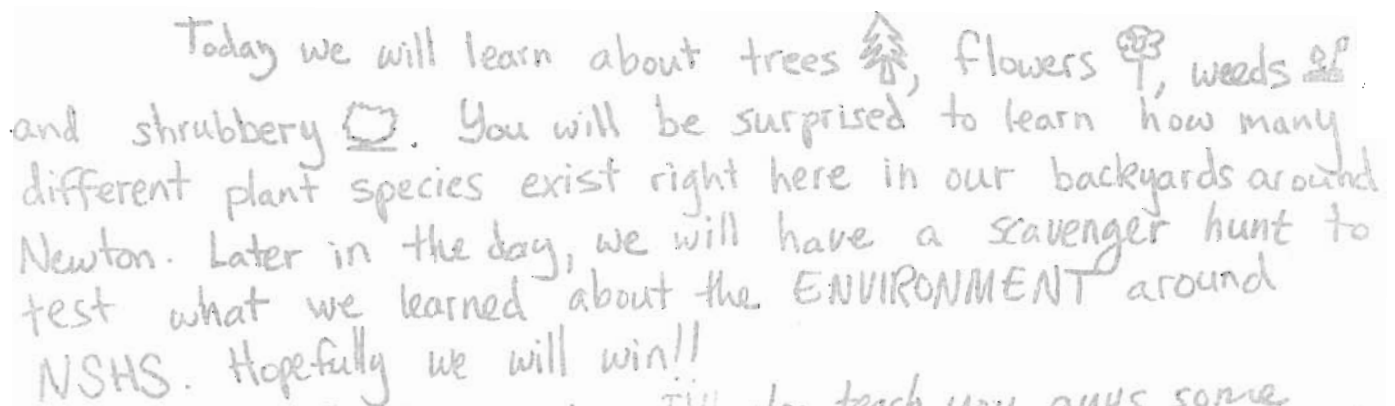 Today we will learn about trees, flowers, weeds,
and shrubbery. You will be surprised to learn how many
different plant species exist right here in our backyards around
Newton. Later in the day, we will have a scavenger hunt to
test what we learned about the ENVIRONMENT around
NSHS. Hopefully we will win!!
teach you guys some